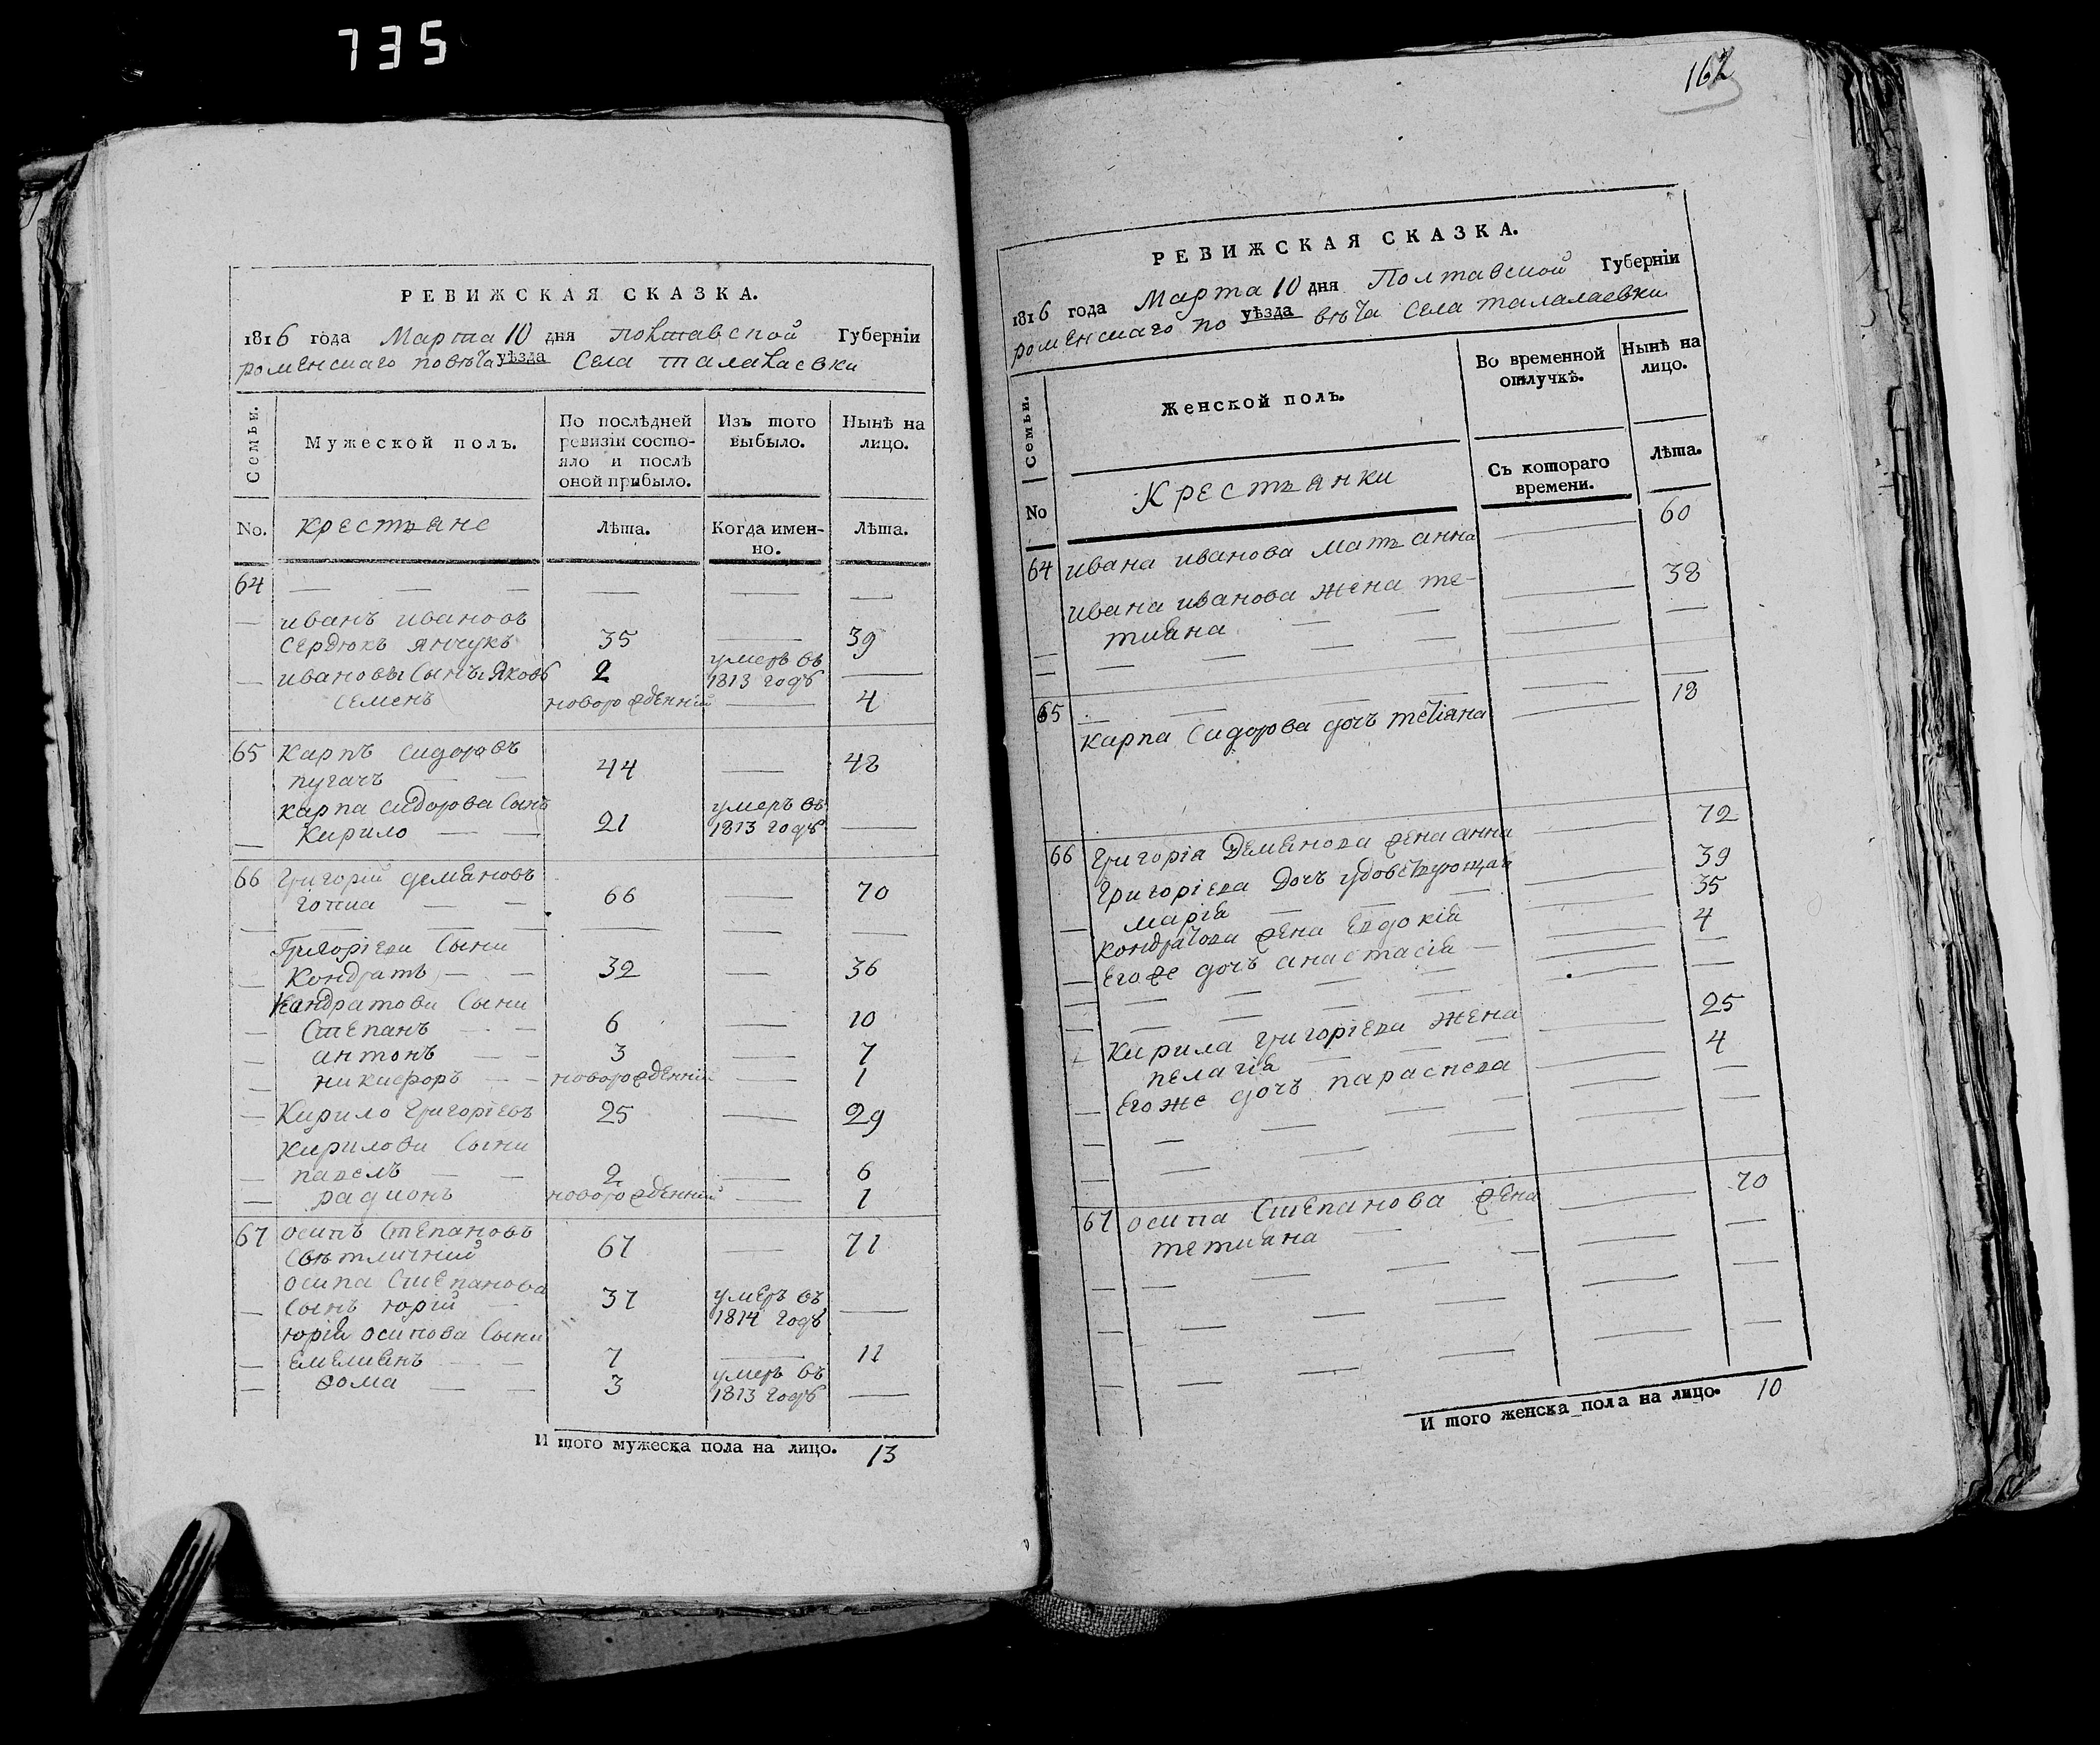 735
РЕВИЖСКАЯ СКАЗКА.
1816 года Марта 10 дня полтавской Губернiи
роменскаго повѣта уѣзда Села талалаевки
Семьи.
Мужеской полъ.
По послѣдней ревизiи состояло и послѣ оной прибыло.
Изъ того выбыло.
Нынѣ на лицо.
No. крестьяне Лѣта. Когда именно. Лѣта.
64 — — — — — —
— иванъ ивановъ
сердюкъ янчукъ 35 — 39
— ивановы сынъ Яковъ 2 умеръ въ 1813 годѣ —
семенъ новорожденній — 4
65 карпъ сидоровъ
пугачъ — — 44 — 48
карпа сидорова сынъ
— кирило — — 21 умеръ въ 1813 годѣ —
66 григорій демяновъ
гопка — — 66 — 70
— — — — — — —
григоріеви сыни
— кондратъ — — 32 — 36
кондратови сыни
— степанъ — — 6 — 10
— антонъ — — 3 — 7
— никифоръ — — новорожденній — 1
— кирило григоріевъ 25 — 29
кирилови сыни
— павелъ — — 2 — 6
— радионъ новорожденній — 1
67 осипъ степановъ
свѣтличній 67 — 71
осипа степанова
— сынъ юрій — 37 умеръ въ 1814 годѣ —
юрія осипова сыни
— емелиянъ — — 7 — 11
— ѳома — — 3 умеръ въ 1813 годѣ —
И того мужеска пола на лицо. 13
162
РЕВИЖСКАЯ СКАЗКА.
1816 года Марта 10 дня Полтавской Губернiи
роменскаго по уѣзда вѣта Села талалаевки
Семьи.
Женской полъ.
Во временной отлучкѣ.
Нынѣ на лицо.
No Крестьянки Съ котораго времени. Лѣта.
64 ивана иванова мать анна — 60
ивана иванова жена те-
тияна — — — 38
— — — — — —
65 — — — — —
карпа сидорова дочь тетіяна — 18
66 григорія демянова жена анна — 72
григоріева дочь удовствующая
— марія — — — — 39
кондратова жена евдокія — 35
— его же дочь анастасія — — 4
— — — — — — —
— — — — — — —
кирила григоріева жена
пелагія — — — — 25
— его же дочь параскева — 4
— — — — — —
— — — — — —
67 осипа степанова жена
тетияна — — — 70
— — — — — —
— — — — — —
— — — — —
И того женска пола на лицо. 10